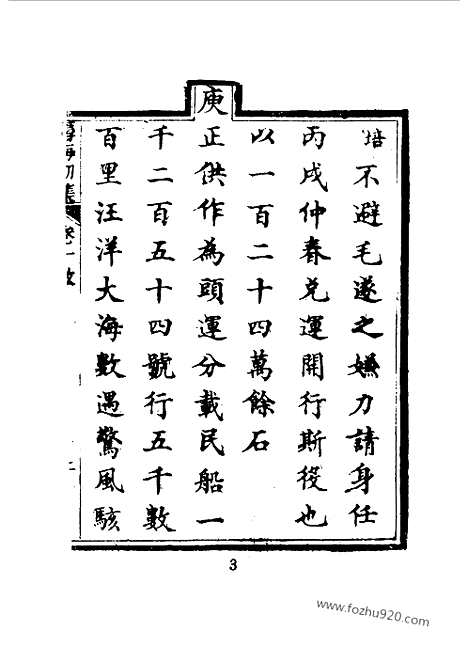 培不避毛遂之嫌力請身任
丙戌仲春兌運開行斯役也
以一百二十四萬餘石
庾正供作為頭運分載民船一
千二百五十四號行五千數
百里汪洋大海數遇驚風駭
初集 卷一
3
www.fozhu920.com